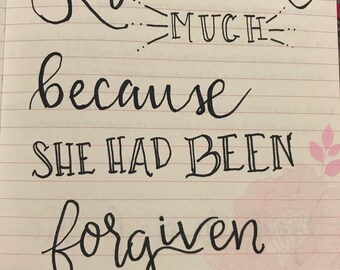 MUCH
because
SHE HAD BEEN
forgiven